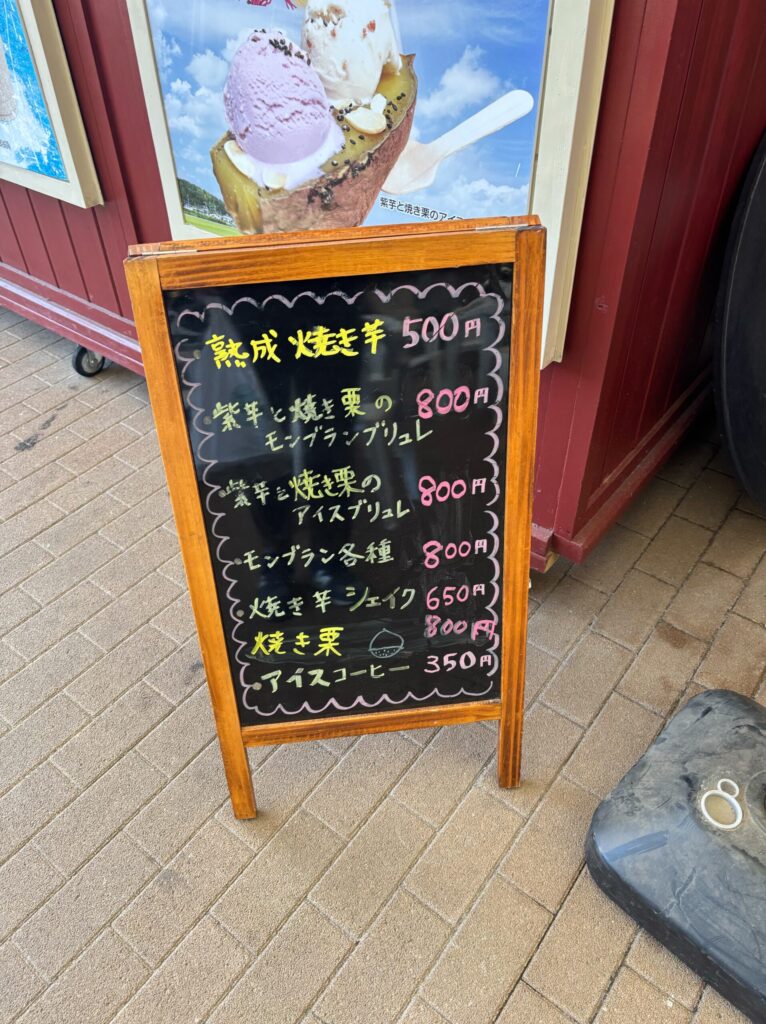 紫芋と焼き栗のアイス
熟成 焼き芋 500円
紫芋と焼き栗の 800円
モンブランブリュレ
紫芋と焼き栗の 800円
アイスブリュレ
・モンブラン各種 800円
・焼き芋 シェイク 650円
焼き栗 800円
・アイスコーヒー 350円